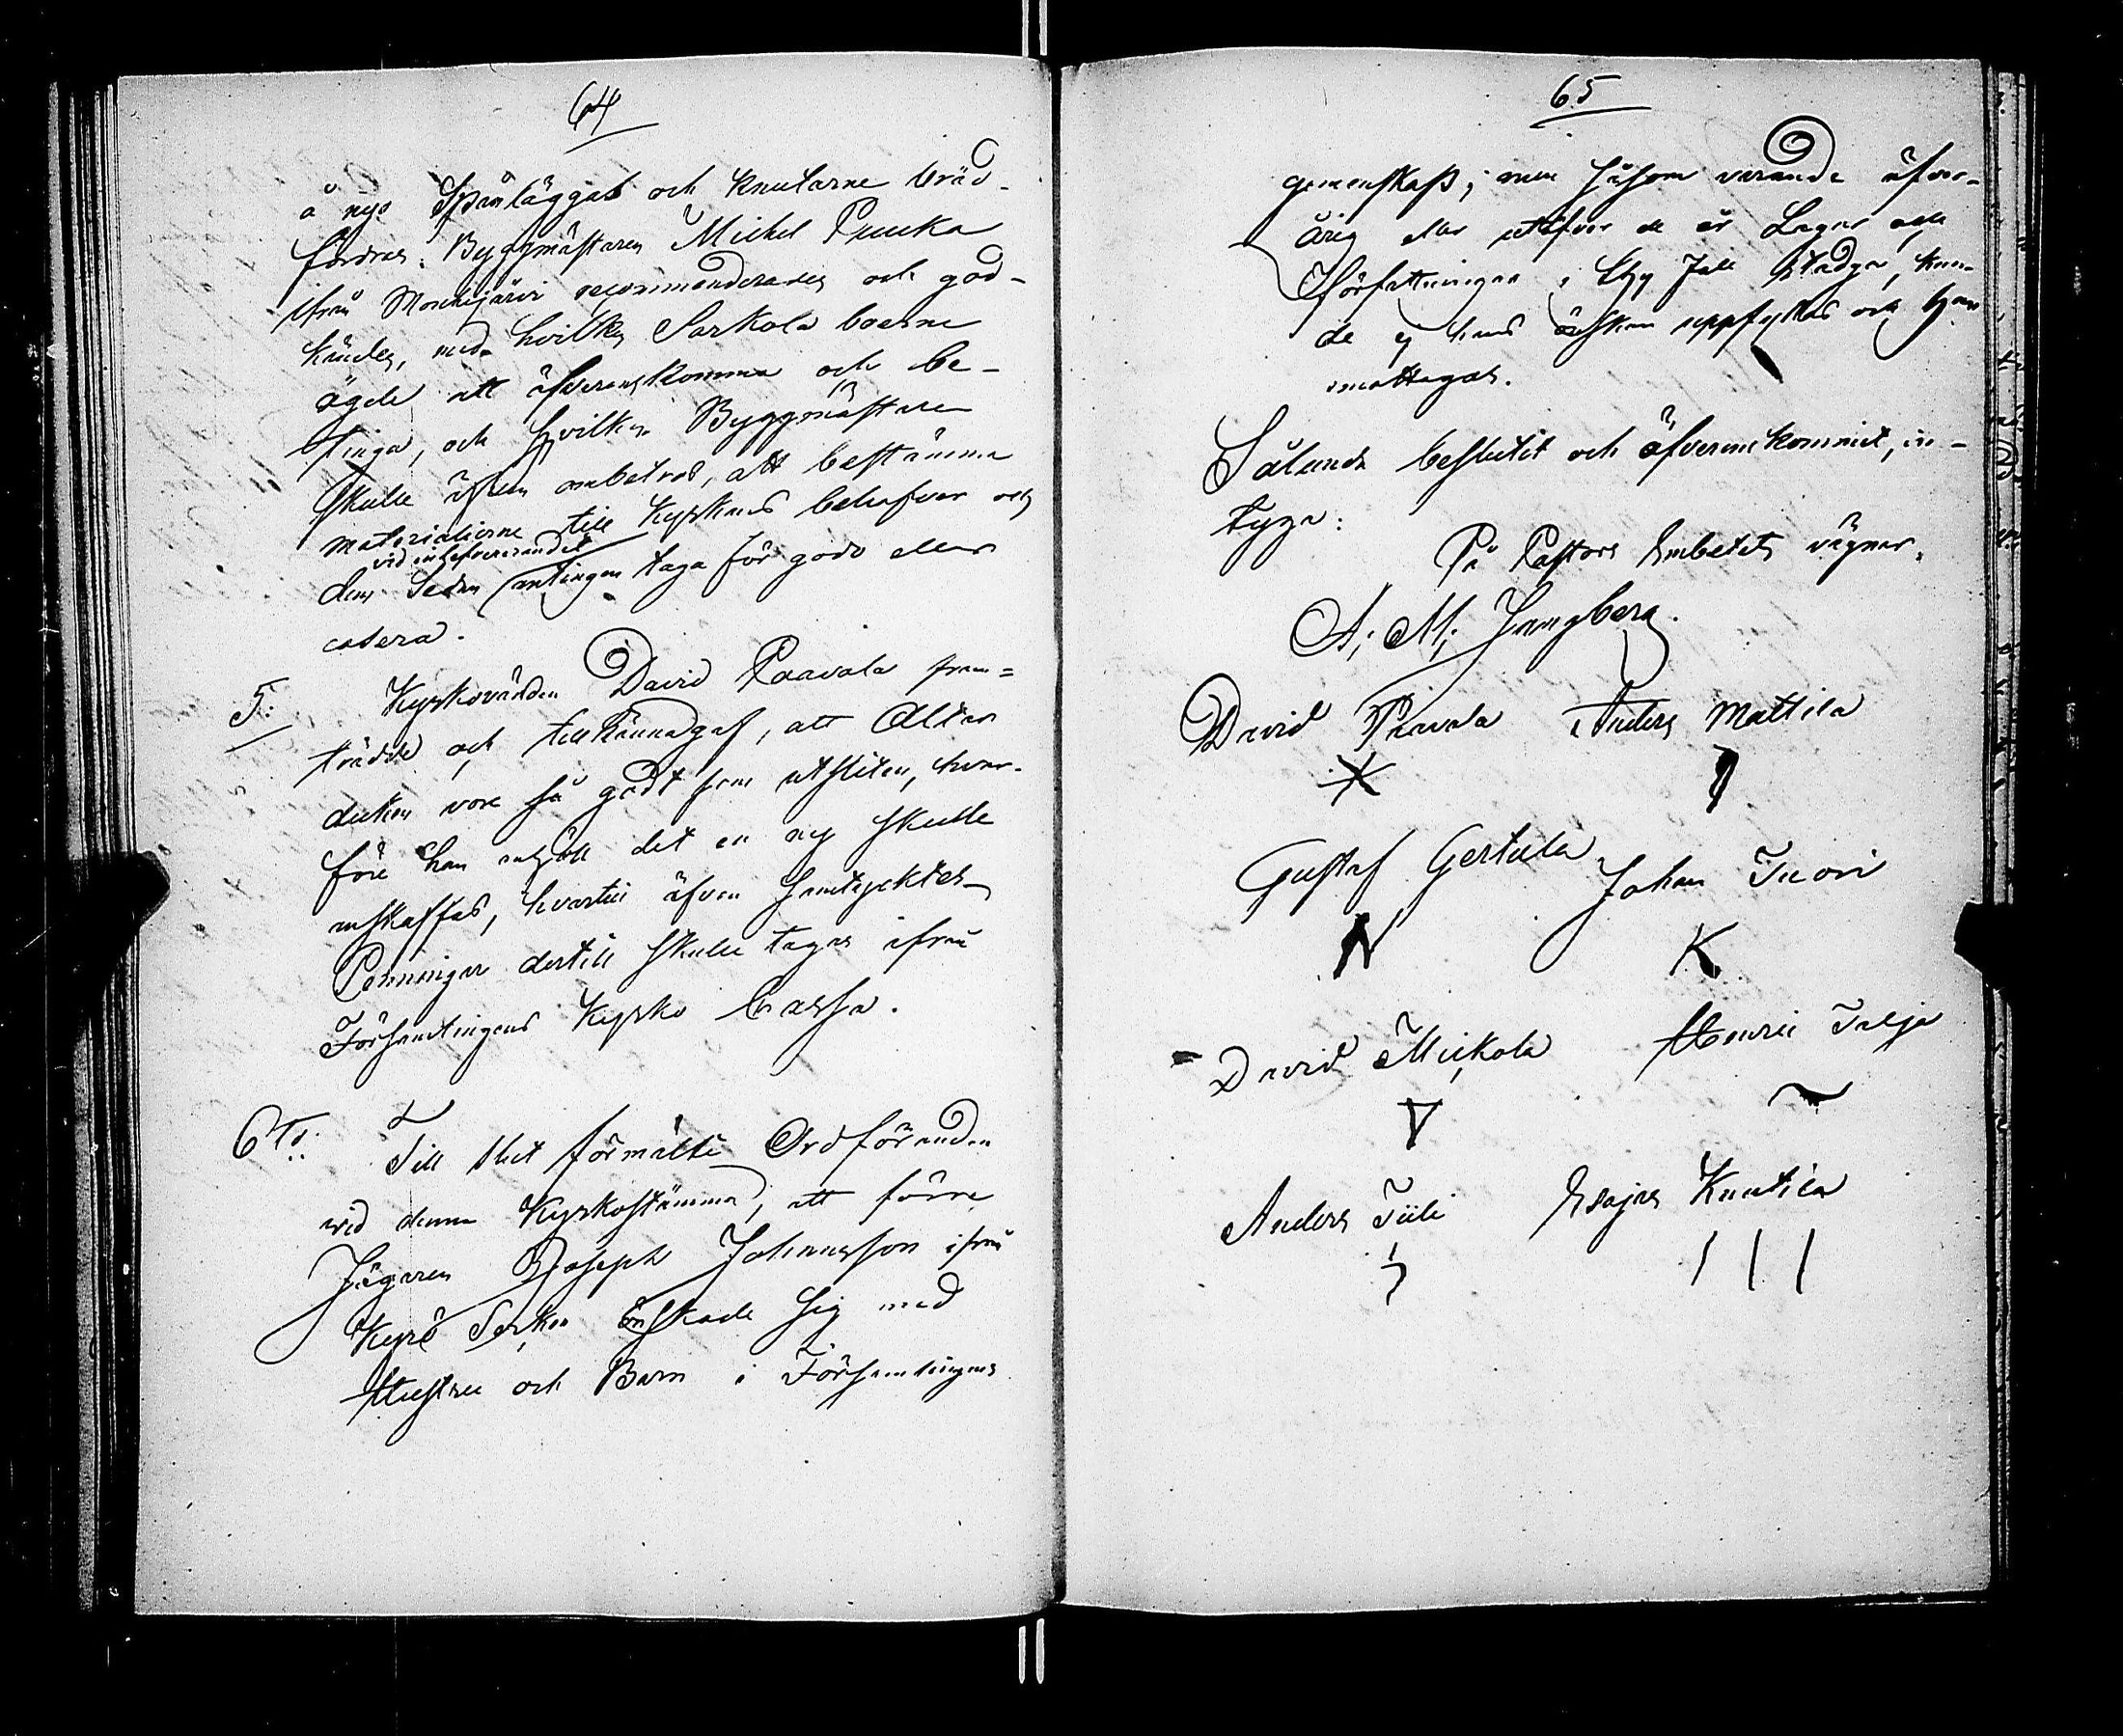 64
å nyo Spånläggas och knutarne bräd-
fordras. Byggmästaren Michel Puuka
ifrån Mouhijärvi recommenderades och god-
kändes, med hvilken Sarkola boerne
ägde att öfverenskomma och be-
tinga, och hvilken Byggmästare
skulle äfven ombetros, att bestämma
materialierne till Kyrkans behofver och
vid inlefvererandet
dem sedan antingen taga för goda eller
casera.
5: Kyrkovärden David Paavola fram=
trädde och tillkännagaf, att Altar
duken vore så godt som utsliten, hvar-
före han anhöll det en ny skulle
anskaffas, hvartill äfven samtycktes
Penningar dertill skulle tagas ifrån
Församlingens Kyrko Cassa.
6to: Till slut förmälte Ordföranden
vid denna Kyrkostämma, att förre
Jägaren Joseph Johansson ifrån
Kyrö Socken önskade sig med
Hustru och Barn i Församlingens
65
gemenskap; men såsom varande öfver-
årig eller utöfver de år Lagar och
författningar i thy fall stadga, kun-
de ej hans önskan uppfyllas och han
mottagas.
Sålunda beslutit och öfverenskommit, in-
tyga:
På Pastors Embetets vägnar,
A. M. Ljungberg.
David Paavola Anders Mattila
Gustaf Gertula Johan Tuori
N K
David Mickola Henric Talja
Anders Tüli Esajas Knutila